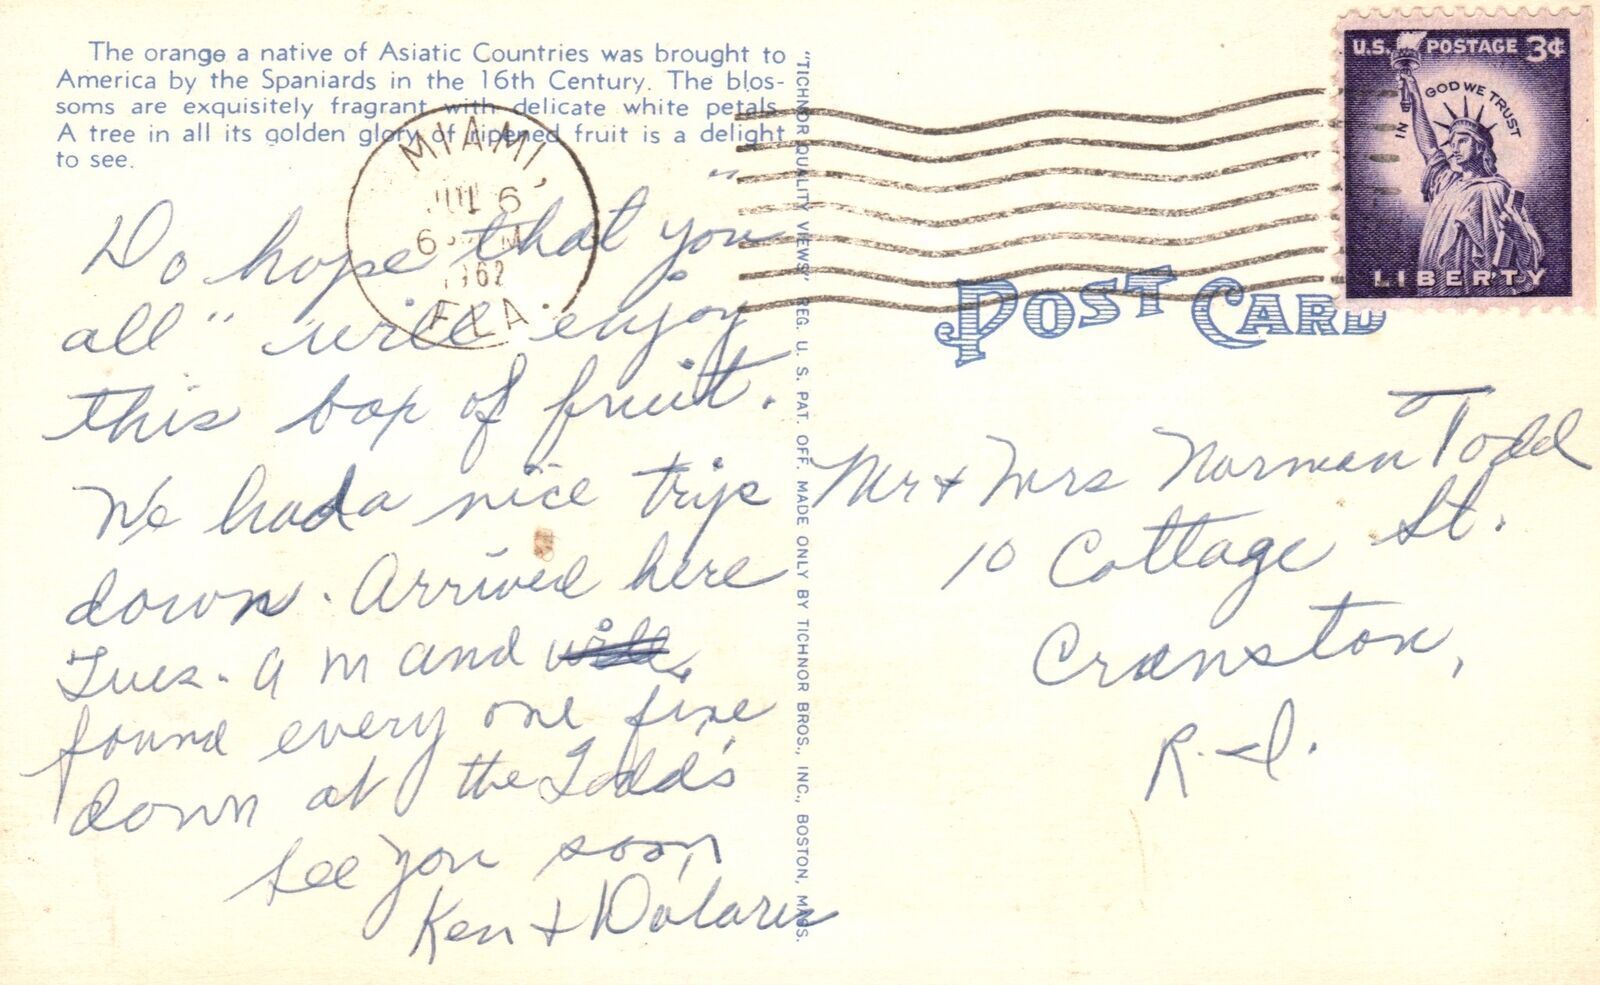 The orange a native of Asiatic Countries was brought to
America by the Spaniards in the 16th Century. The blos-
soms are exquisitely fragrant with delicate white petals.
A tree in all its golden glory of ripened fruit is a delight
to see.
MIAMI,
JUL 6
6 M
1962
FLA.
Do hope that "you
all" will enjoy
this box of fruit.
We had a nice trip
down. Arrived here
Tues. A M and
found every one fine
down at the Todd's
See you soon
Ken + Dolores
"TICHNOR QUALITY VIEWS" REG. U. S. PAT. OFF. MADE ONLY BY TICHNOR BROS., INC., BOSTON, MASS.
U.S. POSTAGE 3¢
IN GOD WE TRUST
LIBERTY
POST CARD
Mr + Mrs Norman Todd
10 Cottage St.
Cranston,
R.I.